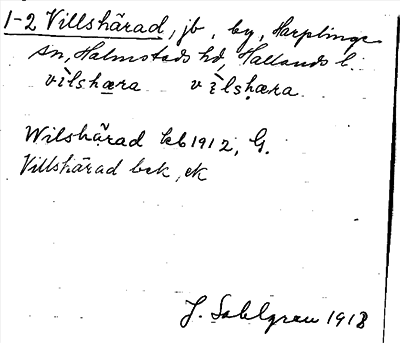 1-2 Villshärad, jb, by, Harplinge
sn, Halmstads hd, Hallands l.
vìlshæra vìlshæra
Wilshärad kb 1912, G.
Villshärad bek, ek
J. Sahlgren 1918